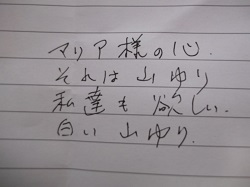 マリア様の心.
それは山ゆり
私達も欲しい.
白い山ゆり.